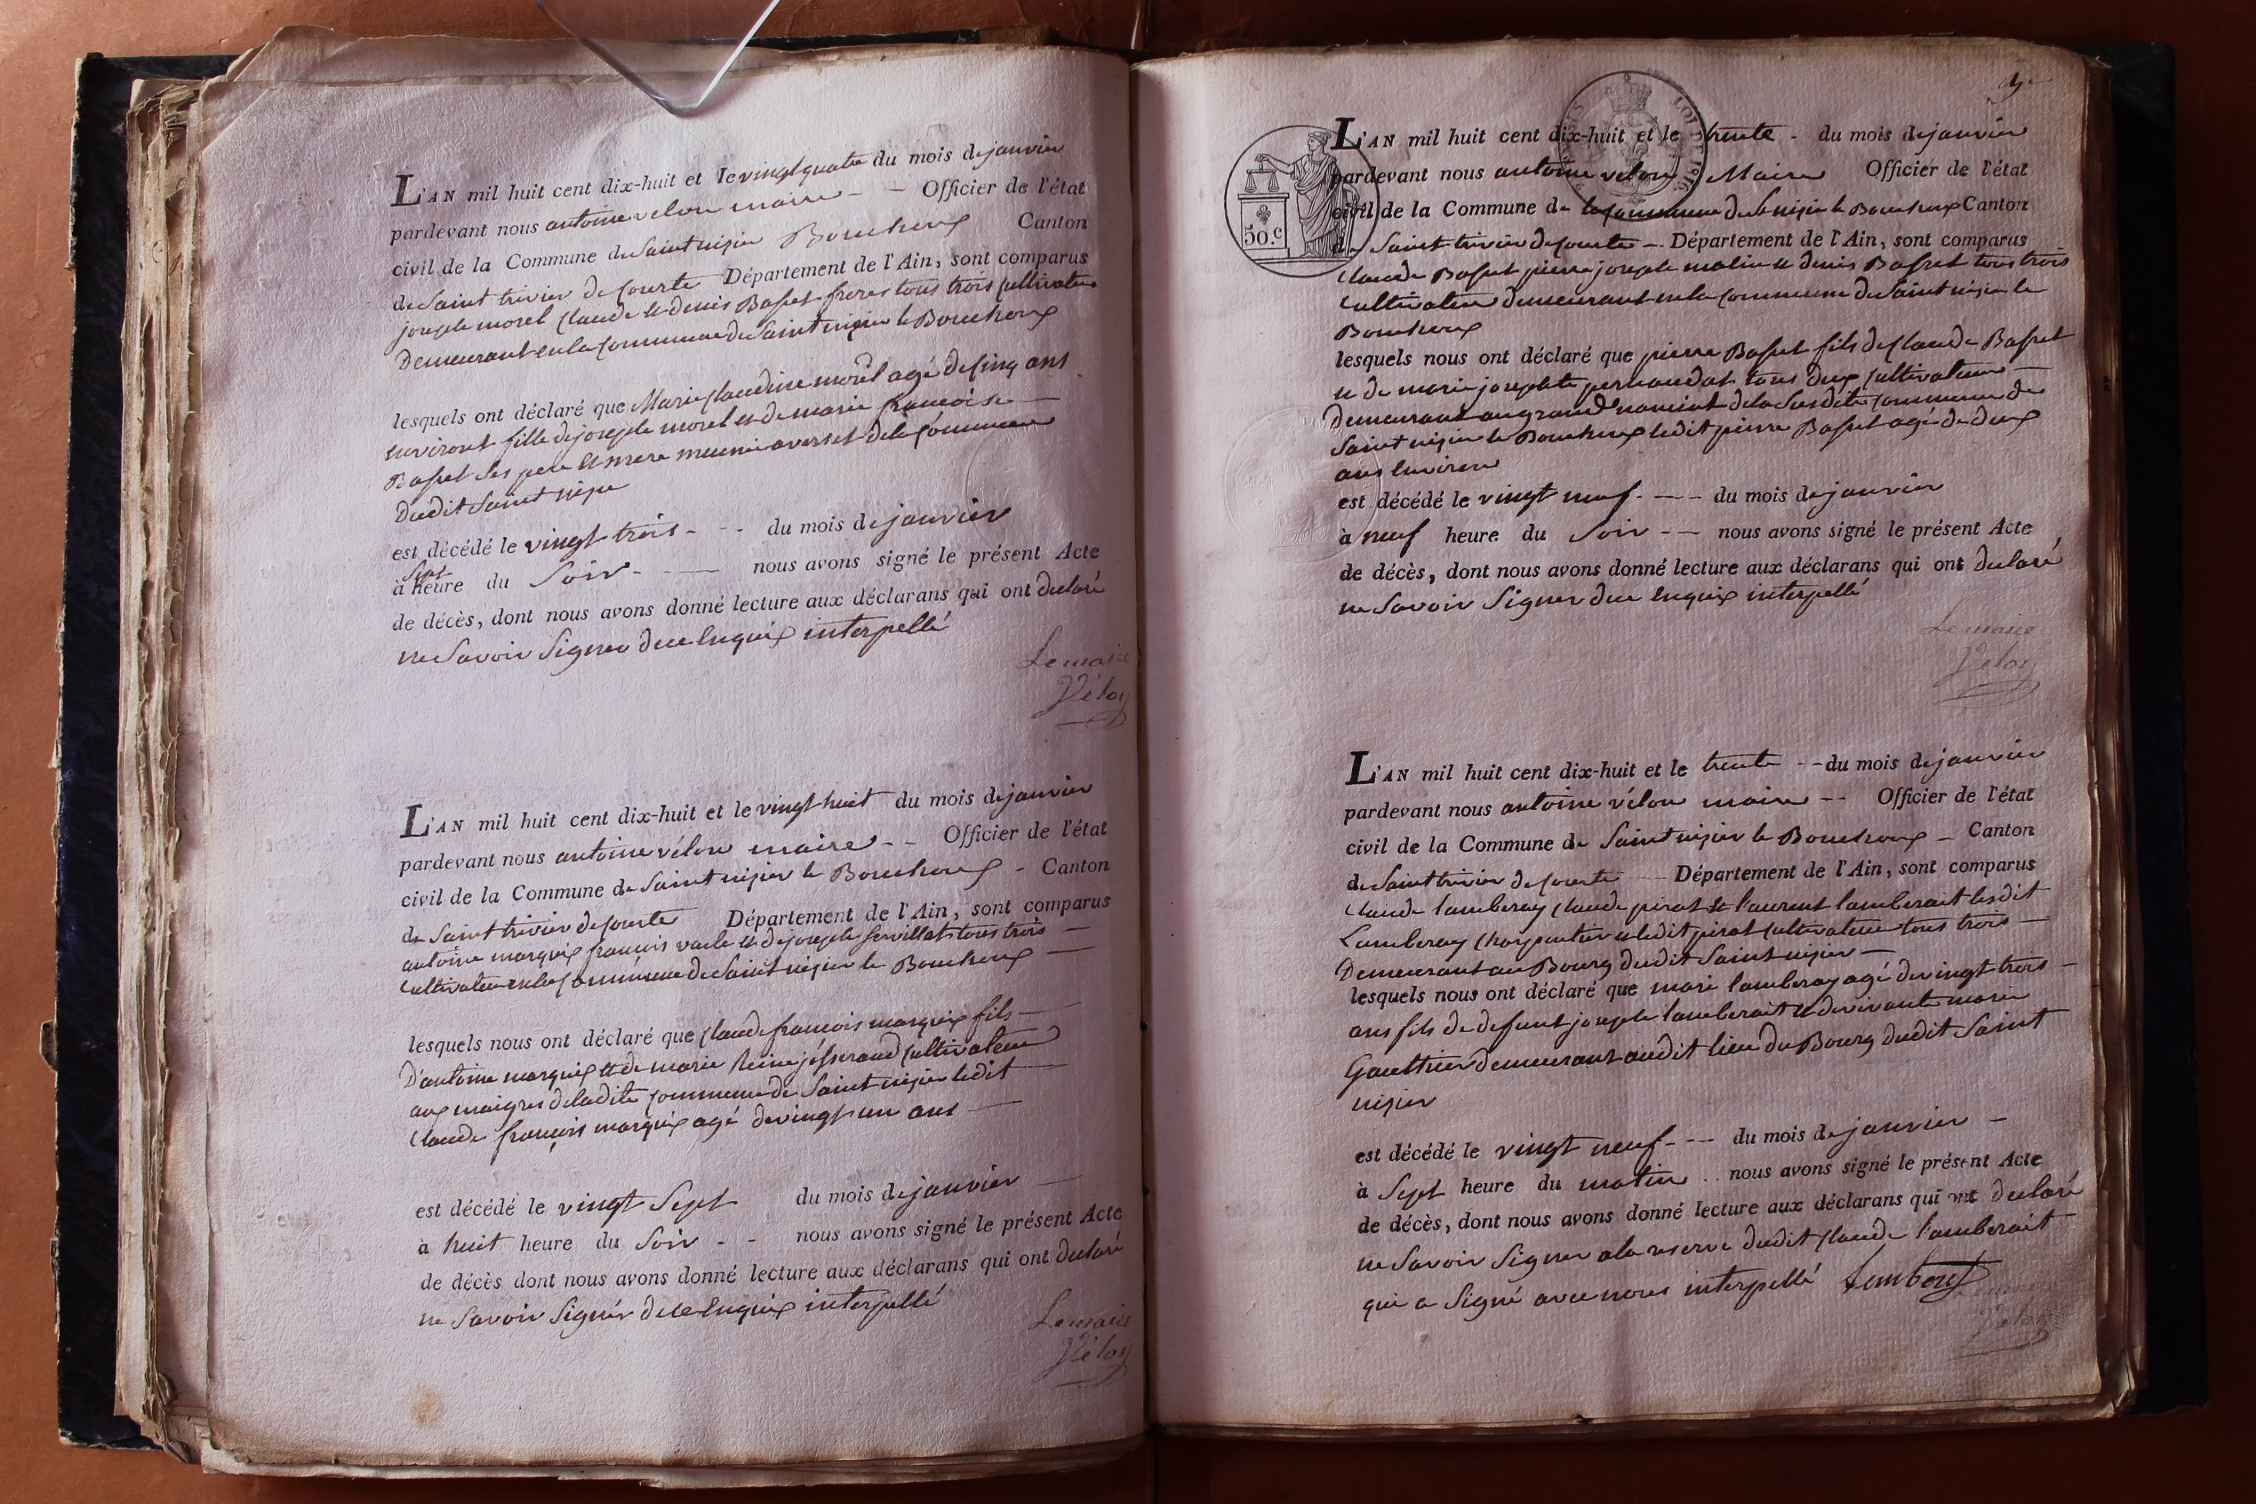 L'AN mil huit cent dix-huit et le vingt quatre du mois de janvier
pardevant nous antoine vélon maire - - Officier de l'état
civil de la Commune de Saint nizier Bouchoux Canton
de Saint trivier de Courte Département de l'Ain, sont comparus
joseple morel Claude et denis Basset freres tous trois Cultivateur
Demeurant en la Commune de Saint nizier le Bouchoux
lesquels ont déclaré que Marie Claudine morel agé de Cinq ans
environt fille de joseple morel et de marie francoise
Basset Ses pere et mere de la Commune
Dudit Saint nizier
est décédé le vingt trois - - du mois de janvier
à Sept heure du Soir - nous avons signé le présent Acte
de décès, dont nous avons donné lecture aux déclarans qui ont declaré
ne Savoir Signer de ce Enquis interpellé
Le maire
Vélon
L'AN mil huit cent dix-huit et le vingt huit du mois de janvier
pardevant nous antoine vélon maire - - Officier de l'état
civil de la Commune de Saint nizier le Bouchoux - Canton
de Saint trivier de Courte Département de l'Ain, sont comparus
antoine marquis francois et de joseple Servillat tous trois
Cultivateur en la Commune de Saint nizier le Bouchoux
lesquels nous ont déclaré que Claude francois marquis fils
D'antoine marquis et de marie Reine josserand Cultivateur
aux maigres de ladite Commune de Saint nizier ledit
Claude françois marquis agé de vingt un ans
est décédé le vingt Sept du mois de janvier
à huit heure du Soir - - nous avons signé le présent Acte
de décès dont nous avons donné lecture aux déclarans qui ont declaré
ne Savoir Signér de ce Enquis interpellé
Le maire
Vélon
LOI DE 1816
50.c
L'AN mil huit cent dix-huit et le trente - du mois de janvier
pardevant nous antoine vélon Maire Officier de l'état
civil de la Commune de la Commune de St nizier le Bouchoux Canton
de Saint trivier de Courte - Département de l'Ain, sont comparus
Claude Basset pierre joseple et denis Basset tous trois
Cultivateur demeurant en la Commune de Saint nizier le
Bouchoux
lesquels nous ont déclaré que pierre Basset fils de Claude Basset
et de marie josephte tous deux Cultivateur
Demeurant au grand de la Susdite Commune de
Saint nizier le Bouchoux ledit pierre Basset agé de deux
ans Environ
est décédé le vingt neuf - - - du mois de janvier
à neuf heure du Soir - - nous avons signé le présent Acte
de décès, dont nous avons donné lecture aux déclarans qui ont declaré
ne Savoir Signer de ce Enquis interpellé
Le maire
Vélon
L'AN mil huit cent dix-huit et le trente - - du mois de janvier
pardevant nous antoine vélon maire - - Officier de l'état
civil de la Commune de Saint nizier le Bouchoux - Canton
de Saint trivier de Courte Département de l'Ain, sont comparus
Claude lamberay Claude pirat et laurent lamberait lesdit
Lamberay Charpentier et ledit pirat Cultivateur tous trois
Demeurant au Bourg dudit Saint nizier
lesquels nous ont déclaré que mari lamberay agé de vingt trois
ans fils de defunt joseple lamberait et de vivante marie
Gaulthier demeurant audit lieu du Bourg dudit Saint
nizier
est décédé le vingt neuf - - - du mois de janvier -
à Sept heure du matin .. nous avons signé le présent Acte
de décès, dont nous avons donné lecture aux déclarans qui ont declaré
ne Savoir Signer a la reserve dudit Claude lamberait
qui a Signé avec nous interpellé
Vélon